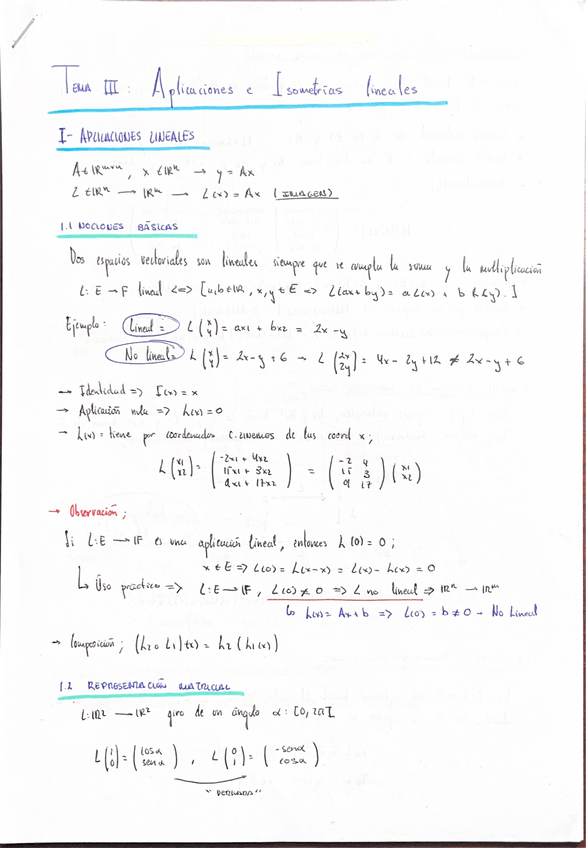 TEMA III: Aplicaciones e Isometrías lineales
I- APLICACIONES LINEALES
A ∈ IR^mxn, x ∈ IR^n → y = Ax
L ∈ IR^n → IR^m → L(x) = Ax (IMAGEN)
1.1 NOCIONES BÁSICAS
Dos espacios vectoriales son lineales siempre que se cumpla la suma y la multiplicación
L: E → F lineal <=> [a,b ∈ IR, x,y ∈ E => L(ax+by) = a L(x) + b L(y).]
Ejemplo: Lineal = L (x y) = ax1 + bx2 = 2x - y
No lineal = L (x y) = 2x - y + 6 → L (2x 2y) = 4x - 2y + 12 ≠ 2x - y + 6
→ Identidad => I(x) = x
→ Aplicación nula => L(x) = 0
→ L(x) = tiene por coordenadas de las coord x;
L (x1 x2) = (-2x1 + 4x2 15x1 + 3x2 9x1 + 17x2) = (-2 4 15 3 9 17) (x1 x2)
→ Observación;
Si L: E → IF es una aplicación lineal, entonces L(0) = 0;
x ∈ E => L(0) = L(x-x) = L(x) - L(x) = 0
↳ Uso práctico => L: E → IF, L(0) ≠ 0 => L no lineal => IR^n → IR^m
↳ L(x) = Ax + b => L(0) = b ≠ 0 - No Lineal
→ Composición; (L2 o L1)(x) = L2 (L1(x))
1.2 REPRESENTACIÓN MATRICIAL
L: IR2 → IR2 giro de un ángulo α: [0, 2π]
L (1 0) = (cosα senα), L (0 1) = (-senα cosα)
"DERIVADA"